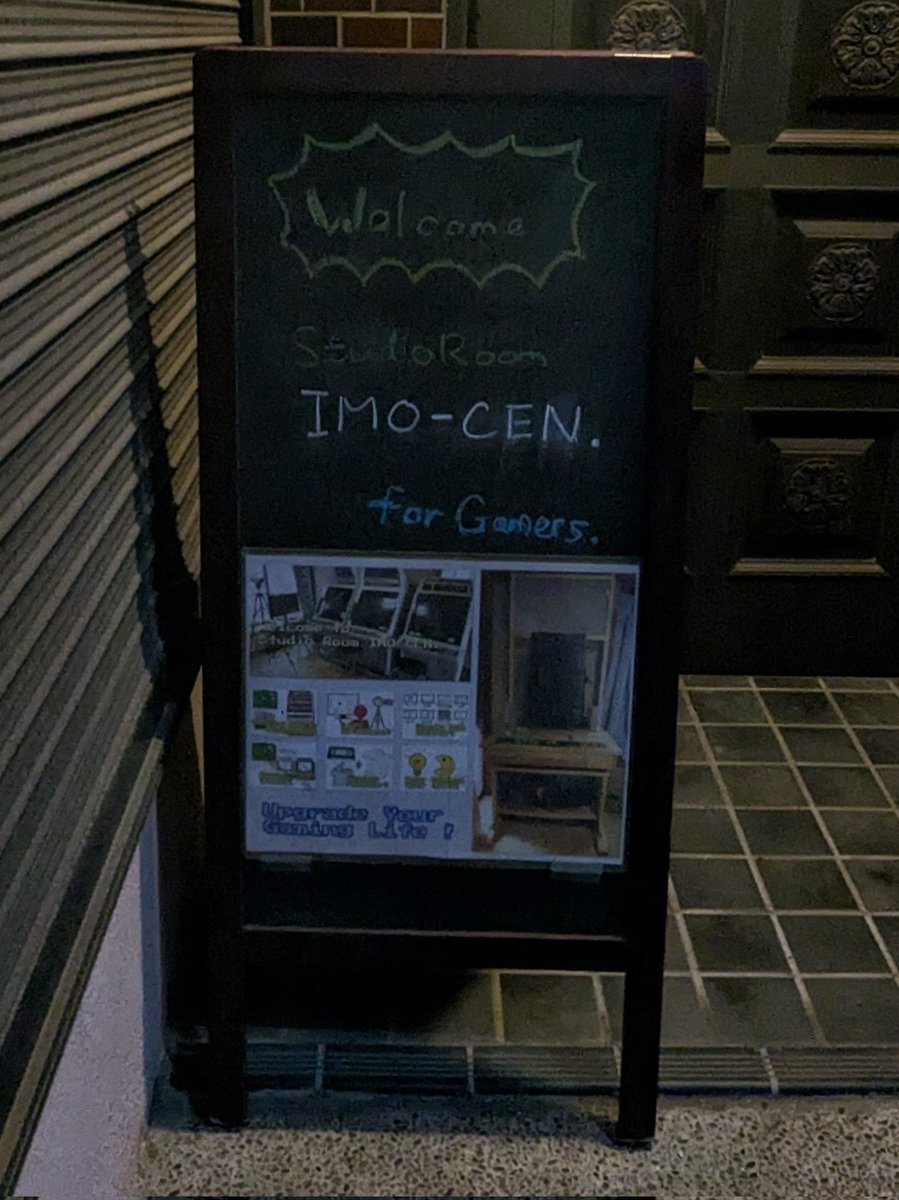 Welcome
StudioRoom
IMO-CEN.
for Gamers.
Welcome to
Studio Room IMO-CEN.
Upgrade Your
Gaming Life !